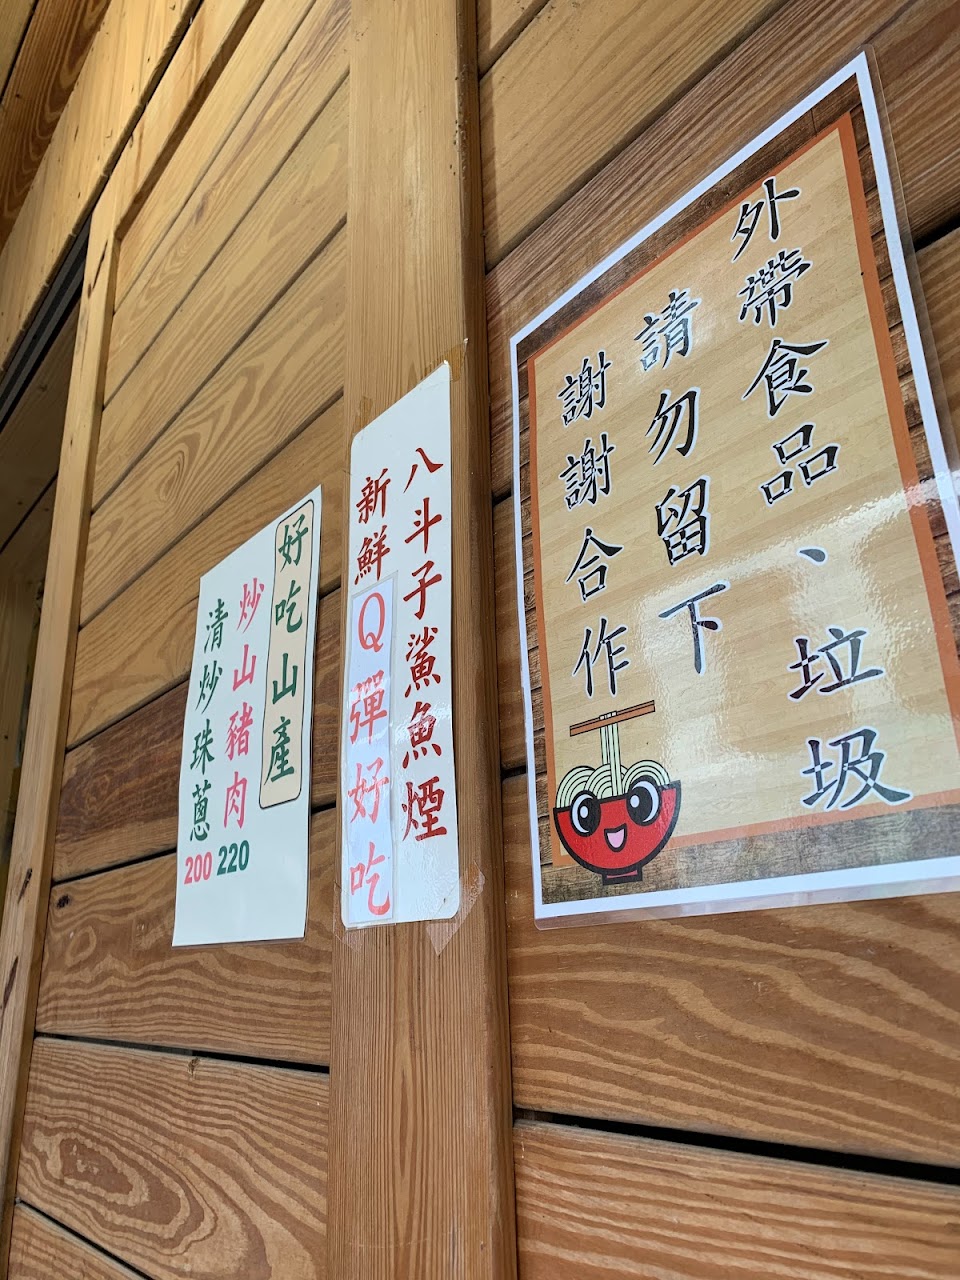 外帶食品、垃圾
請勿留下
謝謝合作
八斗子鯊魚煙
新鮮Q彈好吃
好吃山產
炒山豬肉
清炒珠蔥
200 220